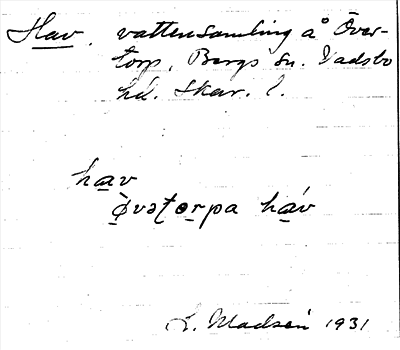 Hav. vattensamling å Över-
torp, Bergs sn. Vadsbo
hd. Skar. l.
hav
ø̀vətơrpa háv
L. Madsén 1931